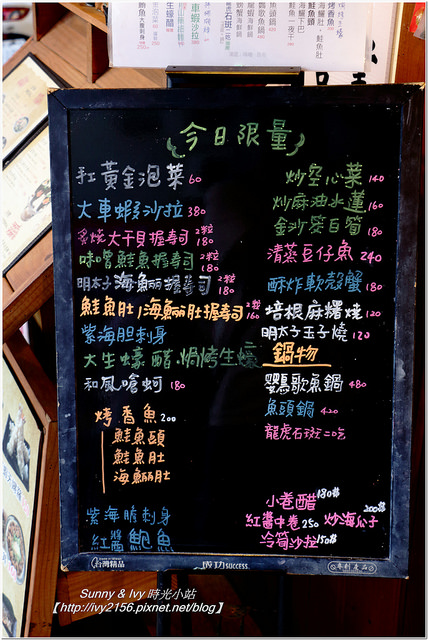 今日限量
紅黃金泡菜 60
大車蝦沙拉 380
炙燒大干貝握壽司 2粒 180
味噌鮭魚握壽司 2粒 180
明太子海鱺握壽司 2粒 180
鮭魚肚/海鱺肚握壽司 2粒 160
紫海胆刺身
大生蠔 醋.焗烤生蠔
和風嗆蚵 180
烤香魚 200
鮭魚頭
鮭魚肚
海鱺肚
紫海膽刺身
紅醬鮑魚
炒空心菜 140
炒麻油水蓮 160
金沙筊白筍 180
清蒸豆仔魚 240
酥炸軟殼蟹 180
培根麻糬燒 120
明太子玉子燒 120
鍋物
鸚歌魚鍋 480
魚頭鍋 420
龍虎石斑二吃
小卷醋 180
紅醬中卷 250 炒海瓜子 200
冷筍沙拉 150
台灣精品
成功 SUCCESS
專利產品
Sunny & Ivy 時光小站
【http://ivy2156.pixnet.net/blog】